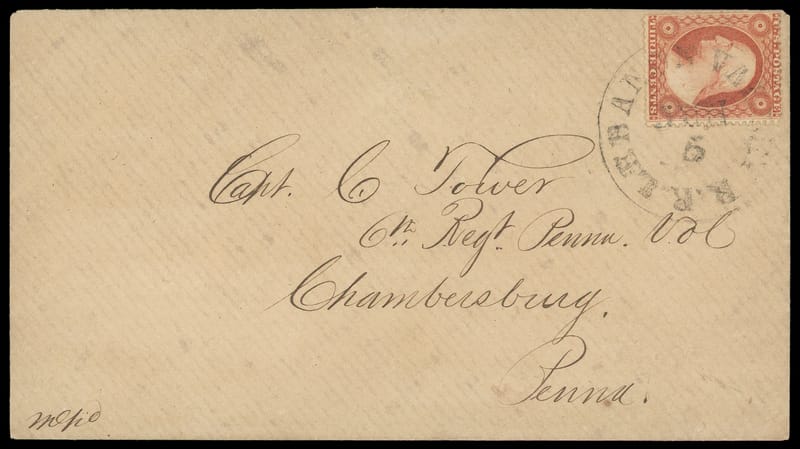 U.S. POSTAGE
THREE CENTS
R.R. LEBAN
VA
9
Capt. C Tower
6th Regt. Penna. Vol
Chambersburg.
Penna.